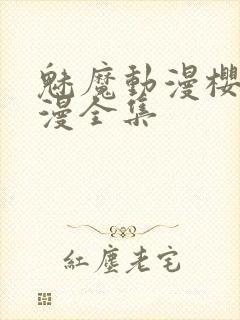 魅魔動漫櫻
漫全集
紅塵老宅